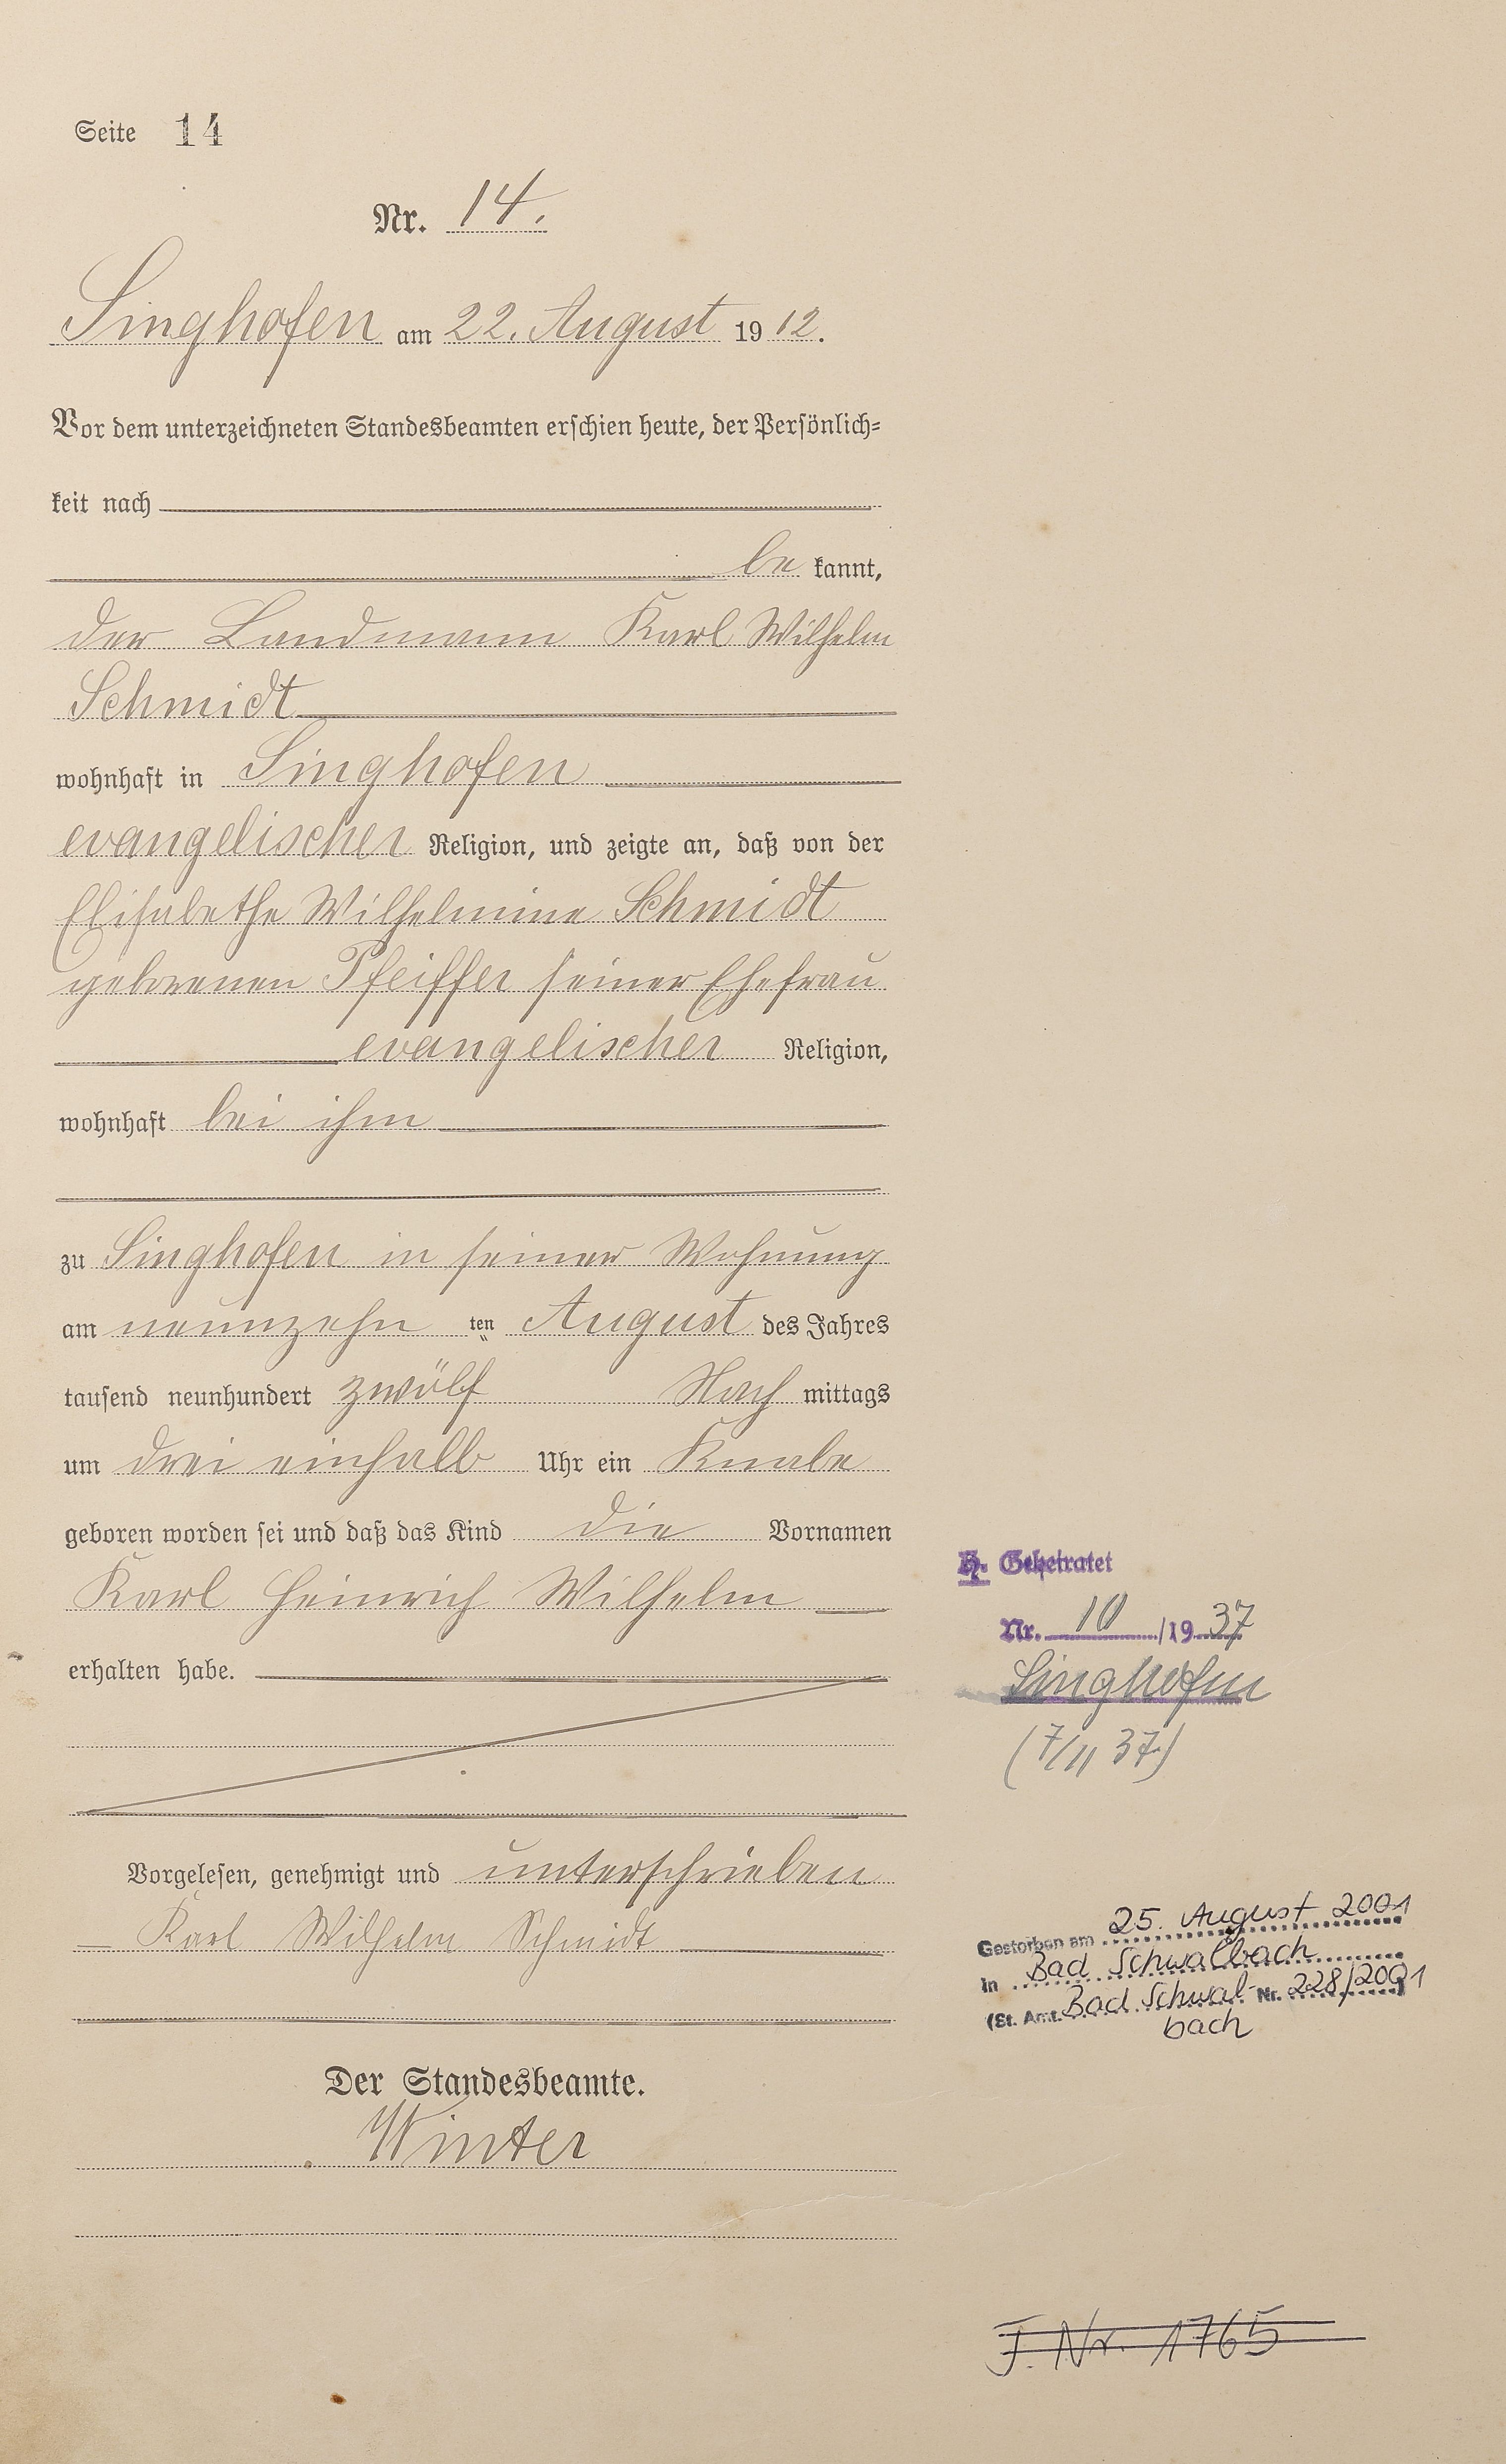 Seite 14
Nr. 14.
Singhofen am 22. August 1912.
Vor dem unterzeichneten Standesbeamten erschien heute, der Persönlich-
keit nach
be kannt,
der Landmann Karl Wilhelm
Schmidt
wohnhaft in Singhofen
evangelischer Religion, und zeigte an, daß von der
Elisabethe Wilhelmine Schmidt
geborenen Pfeiffer seiner Ehefrau
evangelischer Religion,
wohnhaft bei ihm
zu Singhofen in seiner Wohnung
am neunzehn ten August des Jahres
tausend neunhundert zwölf Nach mittags
um drei einhalb Uhr ein Knabe
geboren worden sei und daß das Kind die Vornamen
Karl Heinrich Wilhelm
erhalten habe.
Vorgelesen, genehmigt und unterschrieben
Karl Wilhelm Schmidt
Der Standesbeamte.
Winter
H. Geheiratet
Nr. 10 /1937
Singhofen
(7/11 37)
Gestorben am 25. August 2001
in Bad Schwalbach
(St. Amt. Bad Schwal- Nr. 228/2001
bach
J. Nr. 1765